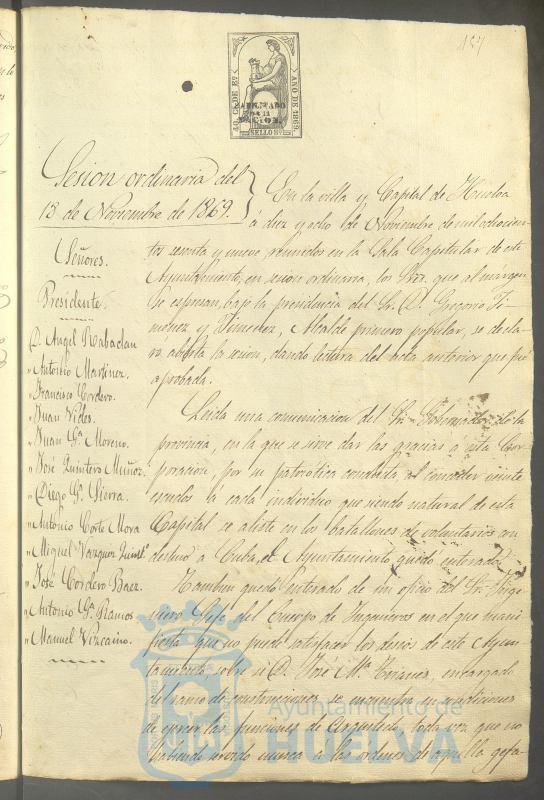 157
40 C. DE Eº. AÑO DE 1869.
HABILITADO
POR LA
NACION.
SELLO 9º
Sesion ordinaria del
18 de Noviembre de 1869.
Señores.
Presidente.
D. Angel Rabadan
" Antonio Martinez.
" Francisco Cordero.
" Juan Vides.
" Juan Gª. Moreno.
" José Quintero Muñoz.
" Diego Gª. Sierra.
" Antonio Corte Mora
" Miguel Vazquez
" José Cordero Baez.
" Antonio Gª. Ramos
" Manuel Vizcaino.
En la villa y Capital de Huelva
á diez y ocho de Noviembre de mil ochocien-
tos sesenta y nueve, reunidos en la Sala Capitular de este
Ayuntamiento, en sesion ordinaria, los Sres. que al margen
se espresan, bajo la presidencia del Sr. D. Gregorio Ji-
menez y Jimenez, Alcalde primero popular, se decla-
ró abierta la sesion, dando lectura del acta anterior que fué
aprobada.
Leida una comunicacion del Sr. Gobernador de la
provincia, en la que se sirve dar las gracias á esta Cor-
poracion, por su patriótica conducta, al conceder veinte
escudos á cada individuo que siendo natural de esta
Capital se aliste en los batallones de voluntarios con
destino á Cuba, el Ayuntamiento quedó enterado.
Tambien quedó enterado de un oficio del Sr. Inge-
niero Gefe del Cuerpo de Ingenieros en el que mani-
fiesta que no puede satisfacer los deseos de este Ayun-
tamiento, sobre si D. José Mª. encargado
del ramo de construcciones se encuentra en condiciones
de ejercer las funciones de Arquitecto, toda vez que no
habiendo servido nunca á las ordenes de aquella gefa-
Ayuntamiento de
HUELVA